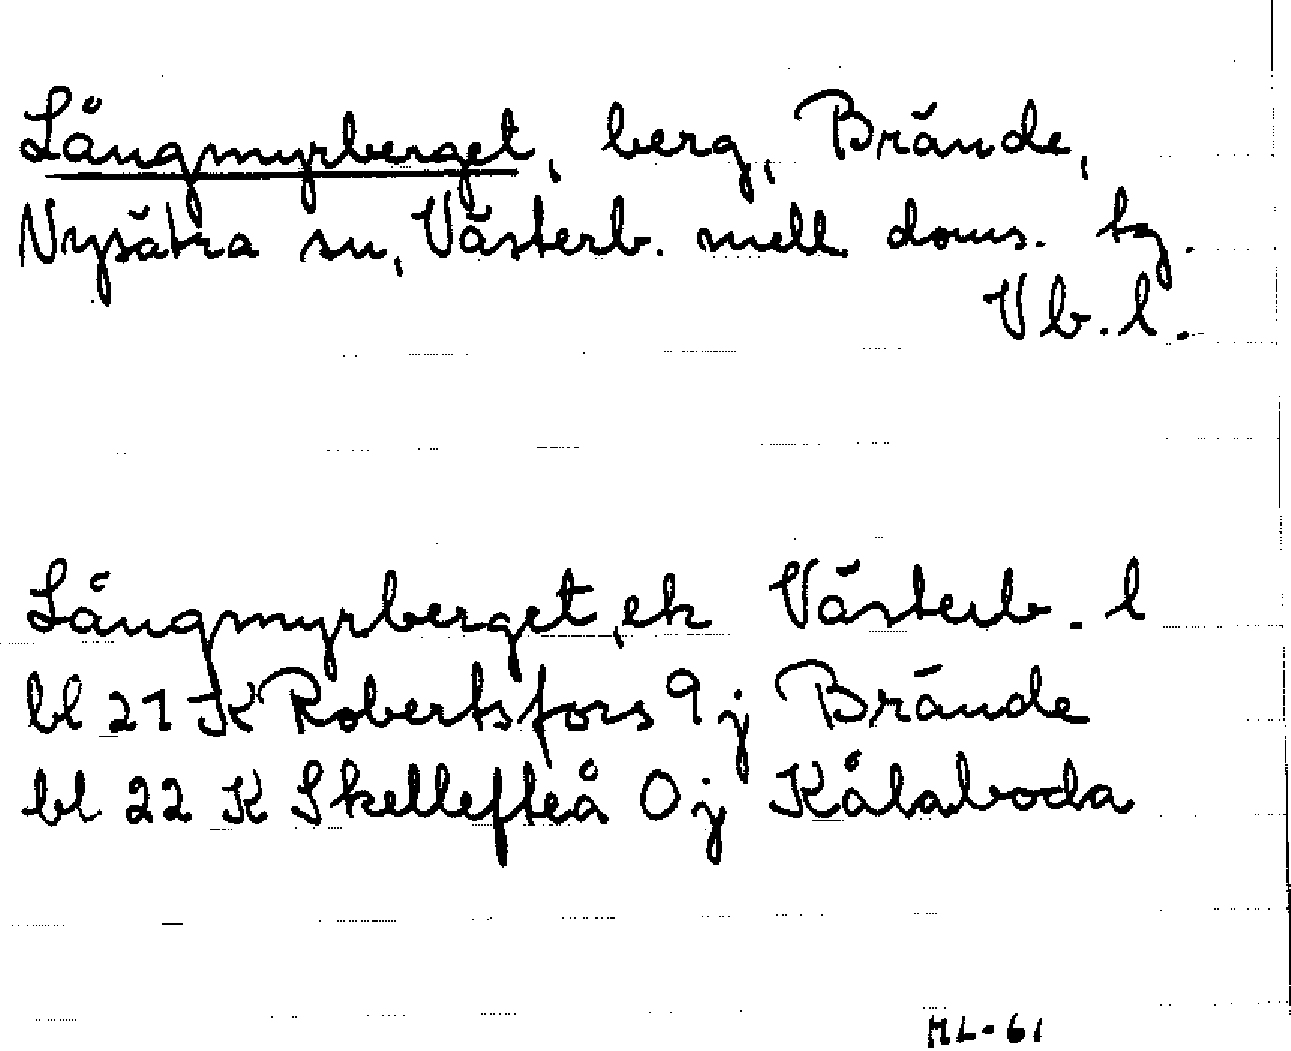 Långmyrberget, berg, Brände,
Nysätra sn, Västerb. mell. doms. tg.
Vb. l.
Långmyrberget, ek Västerb. l
bl 21 K Robertsfors 9 j Brände
bl 22 K Skellefteå 0 j Kålaboda
ML-61